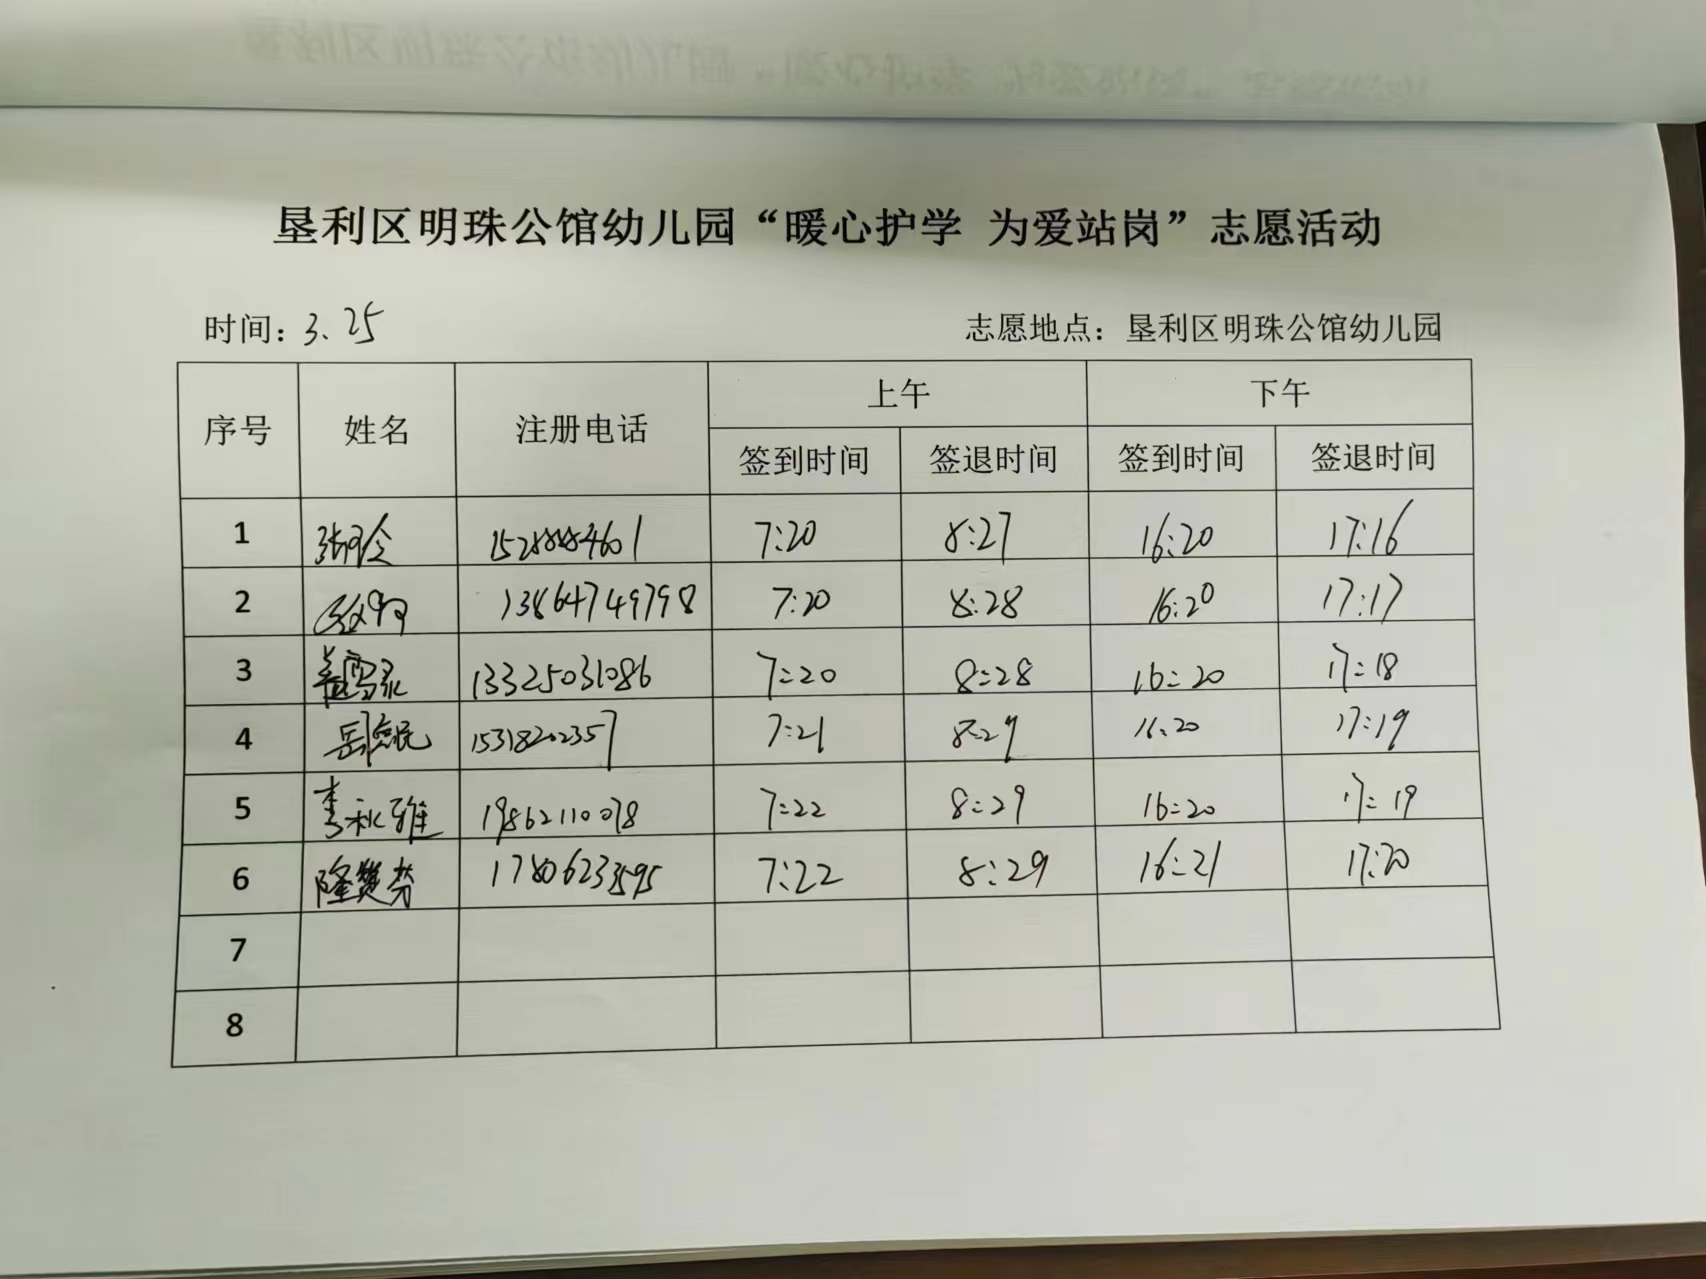 垦利区明珠公馆幼儿园“暖心护学 为爱站岗”志愿活动
时间：3.25 志愿地点：垦利区明珠公馆幼儿园
序号 姓名 注册电话 上午 下午
签到时间 签退时间 签到时间 签退时间
1 7:20 8:27 16:20 17:16
2 13864749798 7:20 8:28 16:20 17:17
3 13325031086 7:20 8:28 16:20 17:18
4 15318202357 7:21 8:29 16:20 17:19
5 李秋雅 19862110078 7:22 8:29 16:20 17:19
6 17806233595 7:22 8:29 16:21 17:20
7
8